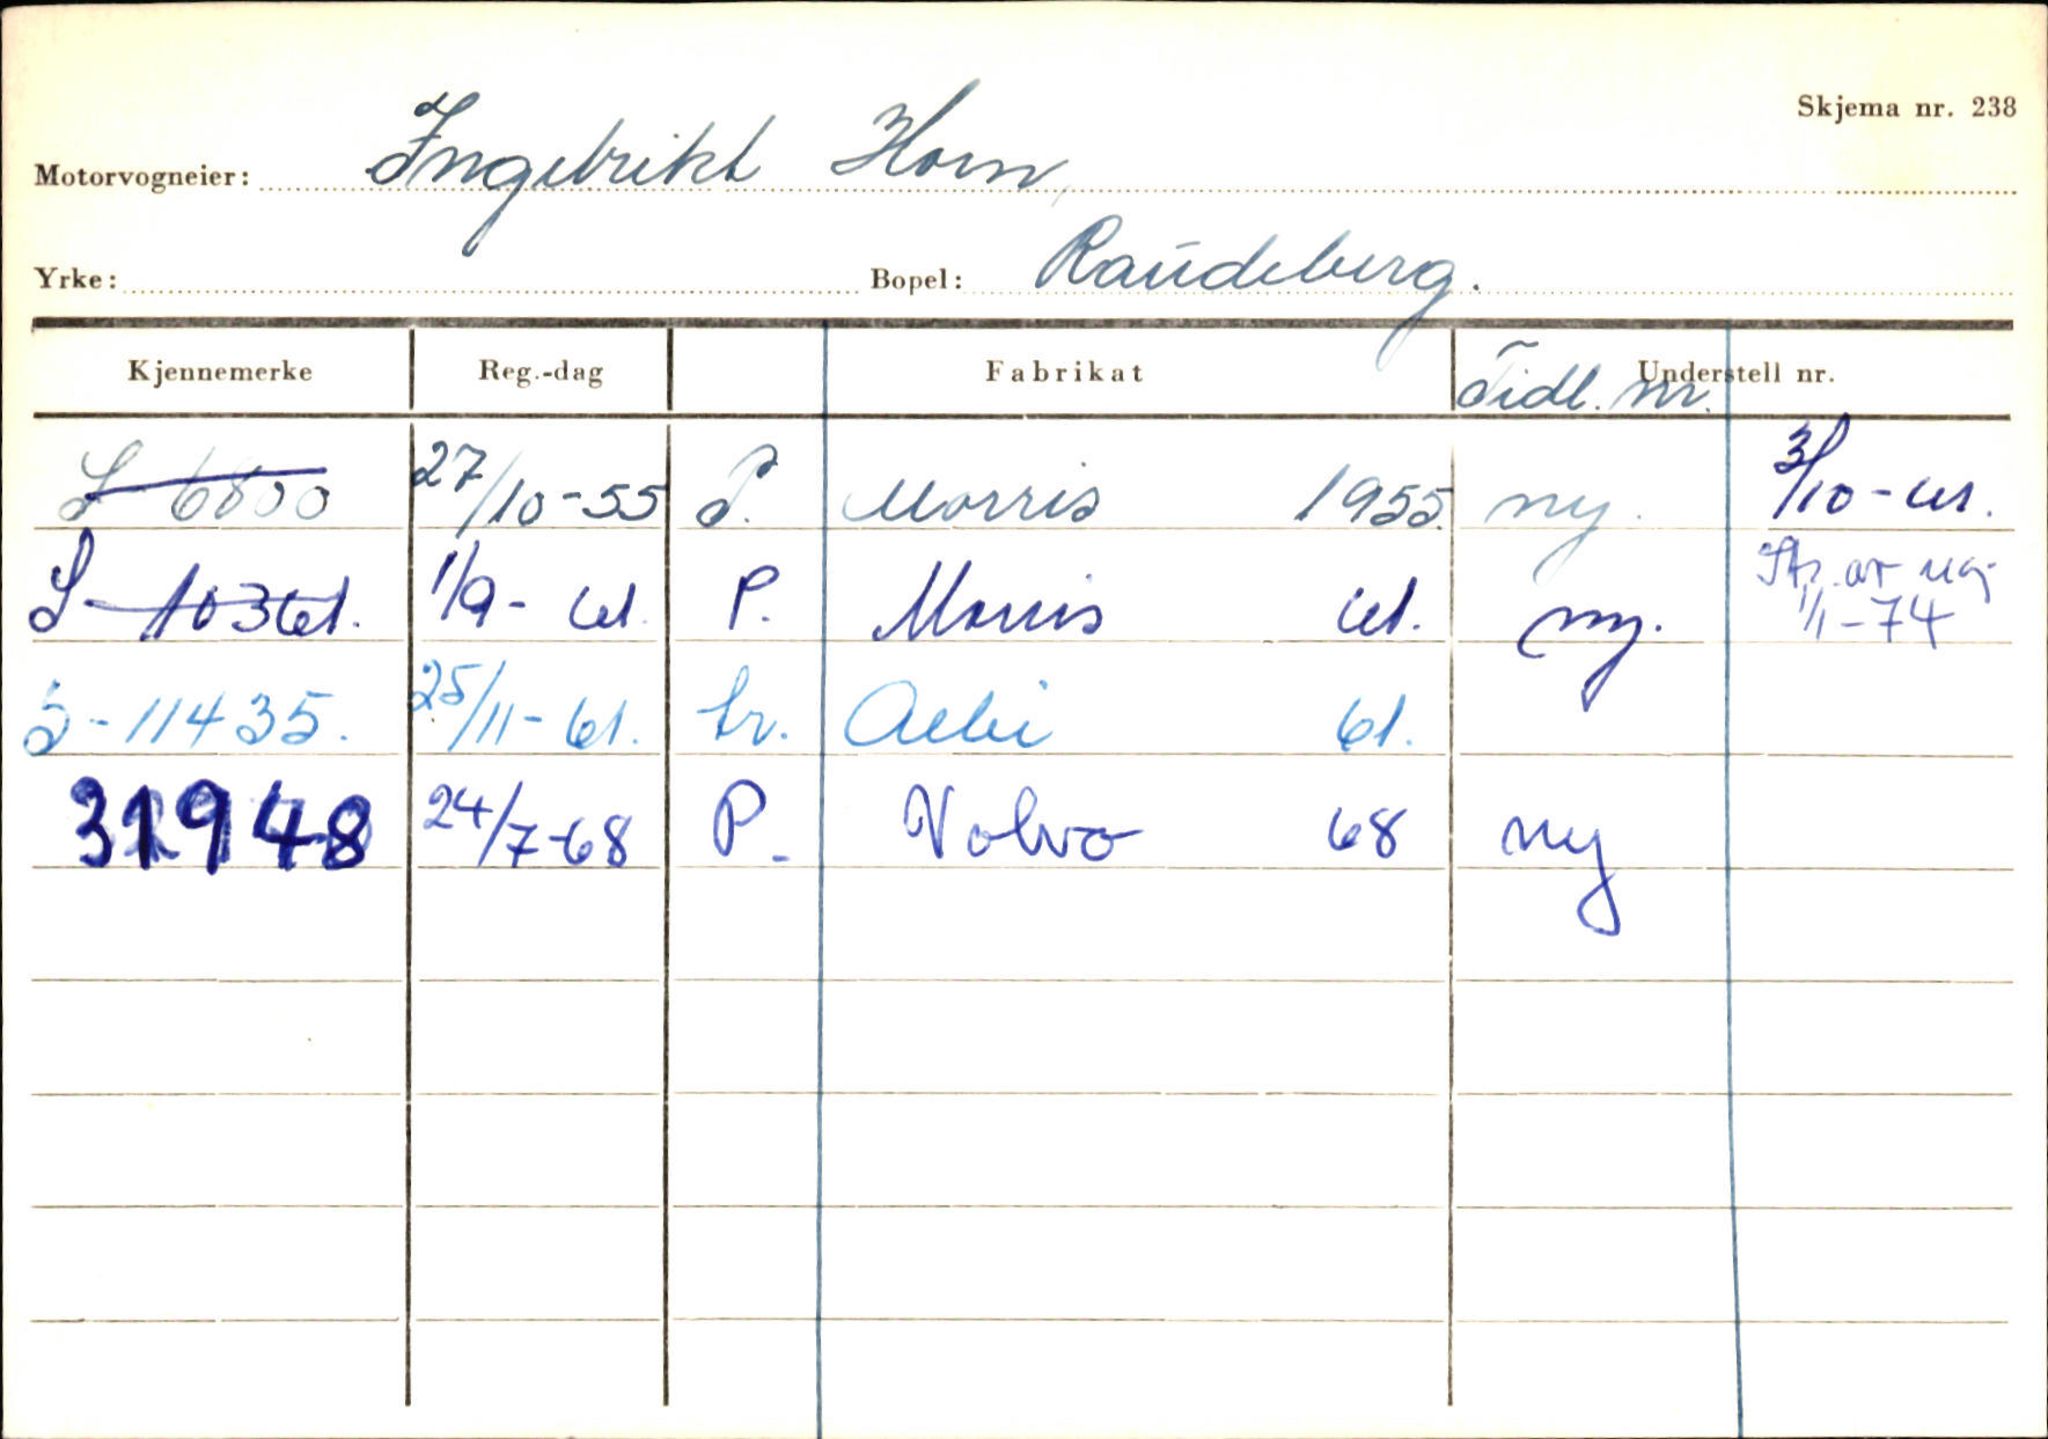 Skjema nr. 238
Motorvogneier: Ingebrikt Horn,
Yrke: Bopel: Raudeberg.
Kjennemerke Reg.-dag Fabrikat Tidl. nr. Understell nr.
S-6800 27/10-55 P. Morris 1955. ny. 3/10-61.
S-10361. 1/9-61. P. Morris 61. ny. 1/1-74
S-11435. 25/11-61. tr. Aebi 61.
31948 24/7-68 P. Volvo 68 ny